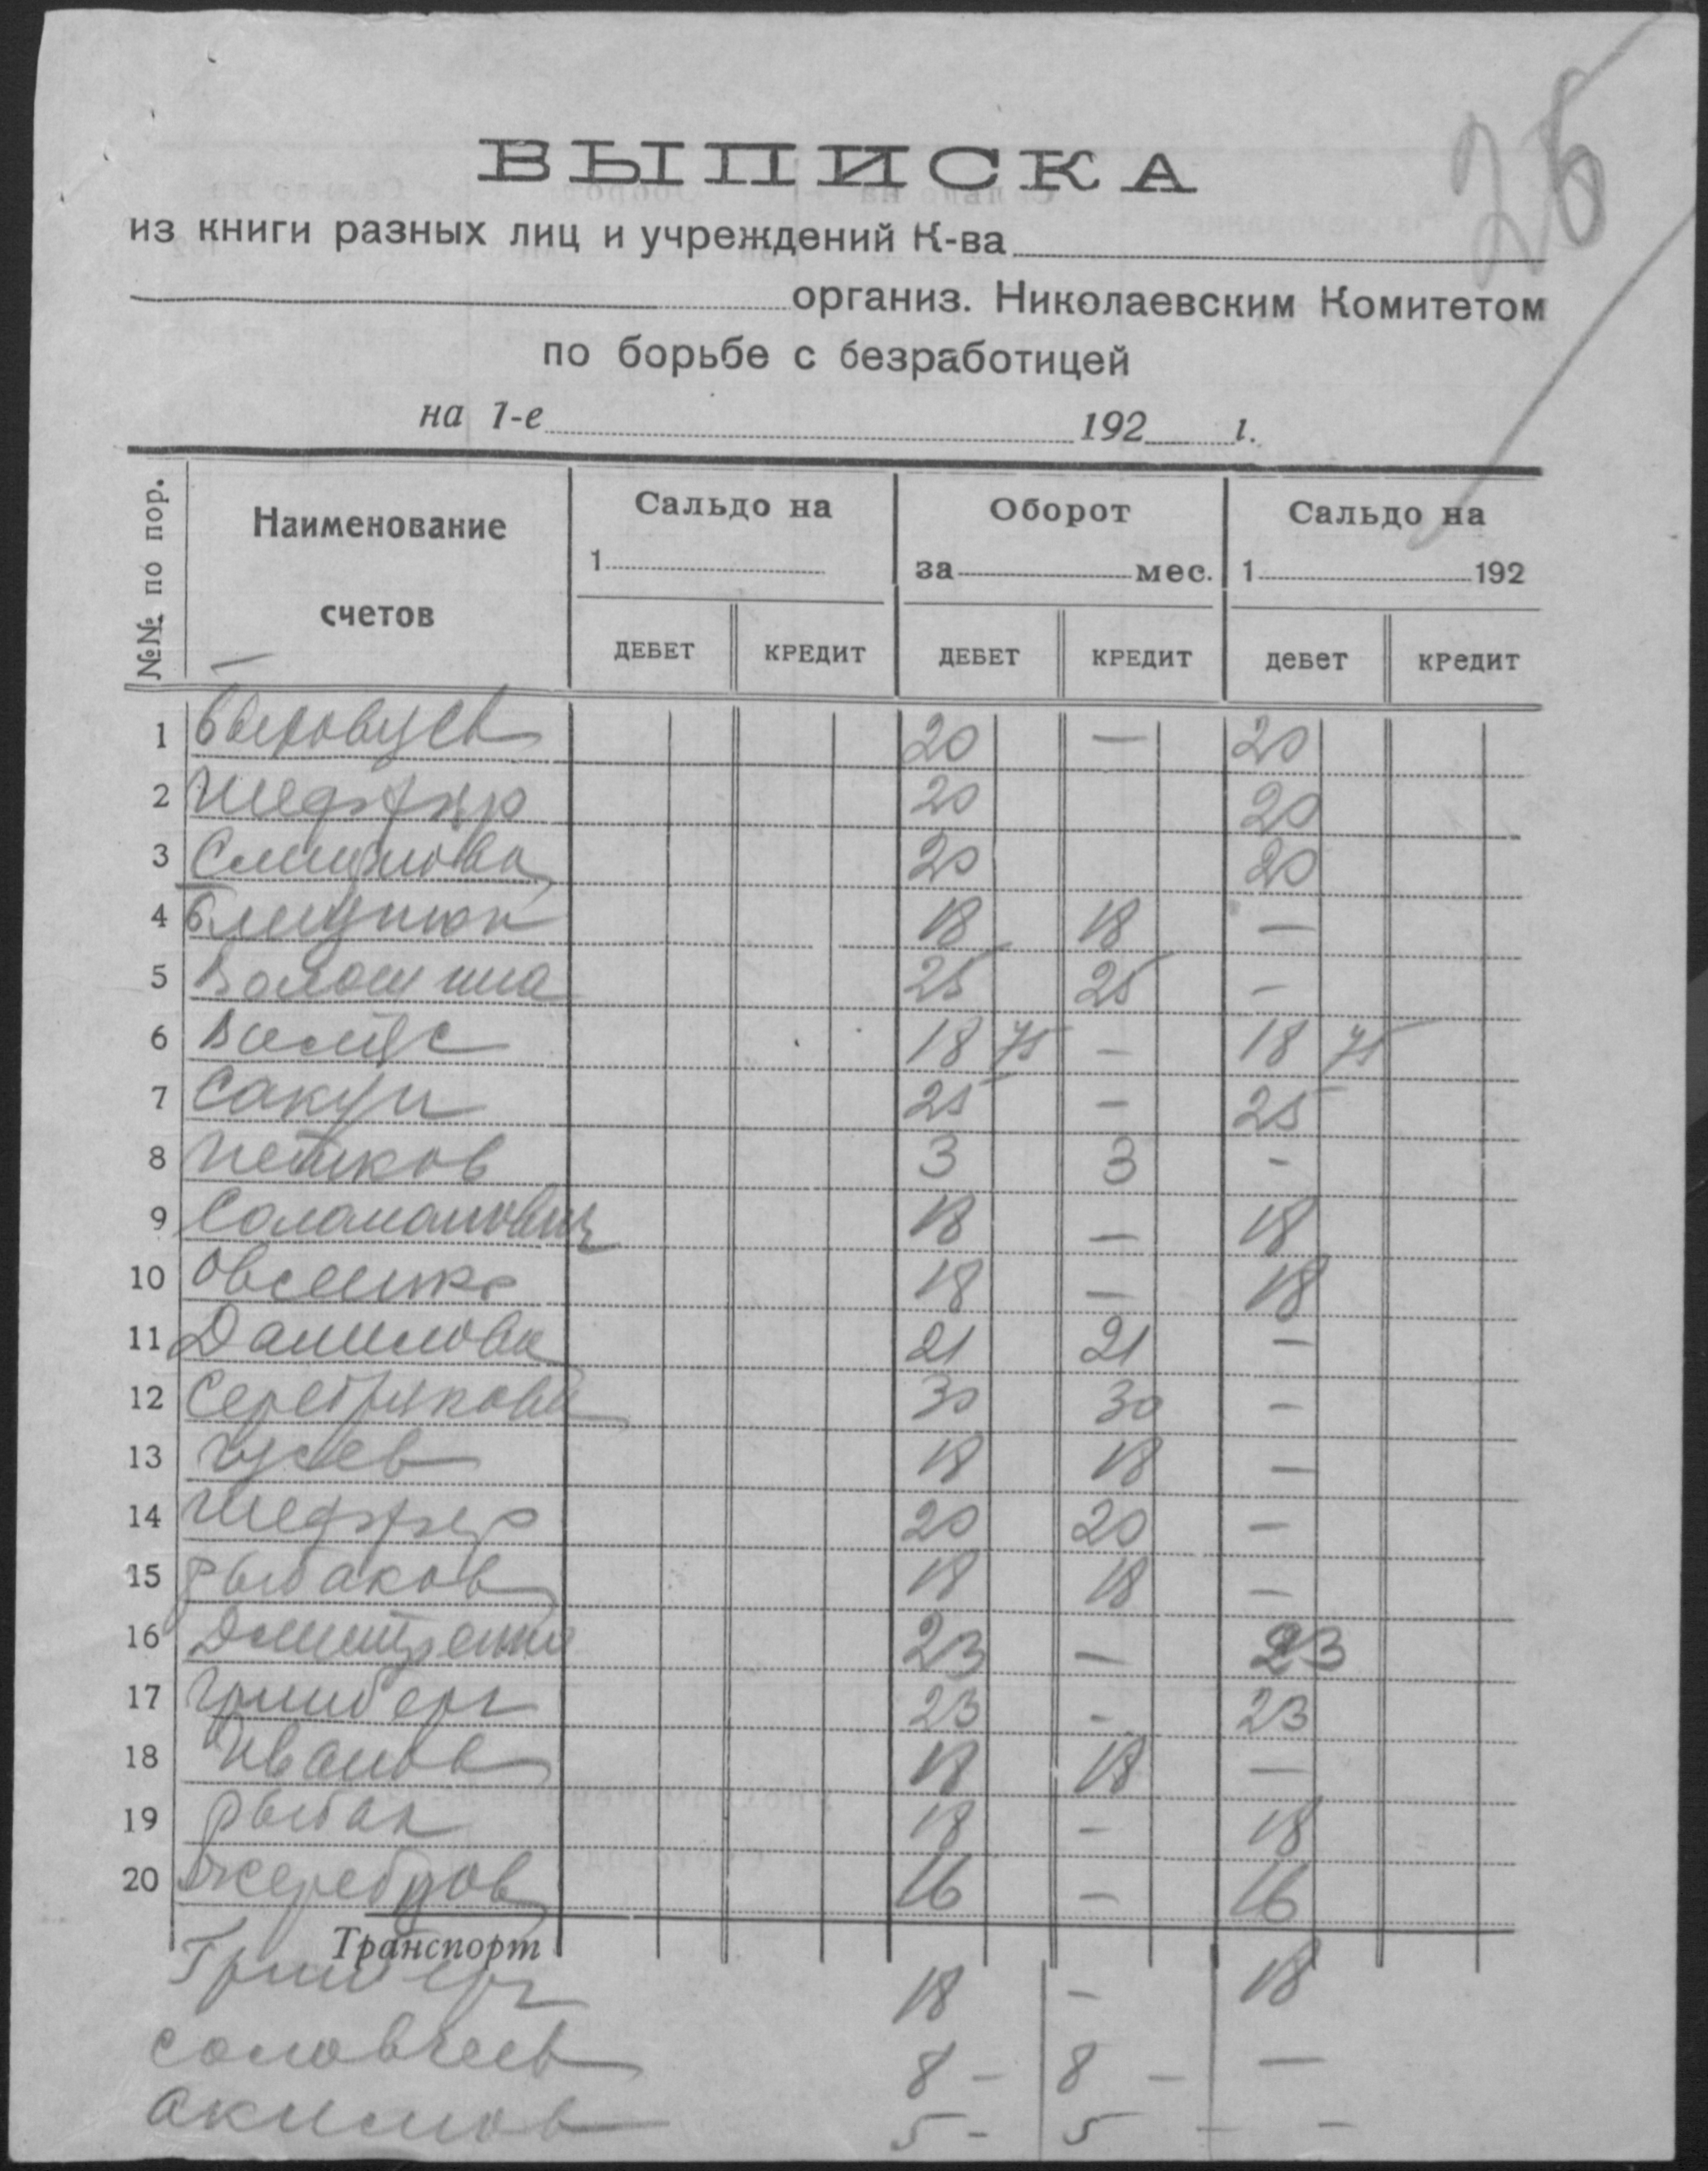 26
ВЫПИСКА
из книги разных лиц и учреждений К-ва
организ. Николаевским Комитетом
по борьбе с безработицей
на 1-е 192 г.
№№ по пор. Наименование счетов Сальдо на 1 Оборот за мес. Сальдо на 1 192
ДЕБЕТ КРЕДИТ ДЕБЕТ КРЕДИТ дебет кредит
1 20 — 20
2 Шеффер 20 20
3 20 20
4 18 18 —
5 Волошина 25 25 —
6 18 75 — 18 75
7 Сакун 25 — 25
8 Петков 3 3 -
9 Саламанович 18 — 18
10 Овсенко 18 — 18
11 Данилова 21 21 —
12 Серебрякова 30 30 -
13 Гусев 18 18 —
14 Шеффер 20 20 —
15 Рыбаков 18 18 —
16 Дмитренко 23 — 23
17 Гринберг 23 - 23
18 Иванов 18 18 —
19 Рыбак 18 - 18
20 Жеребцов 16 — 16
Транспорт
Гринберг 18 - 18
Соловчев 8 - 8 - —
Акимов 5 - 5 - -